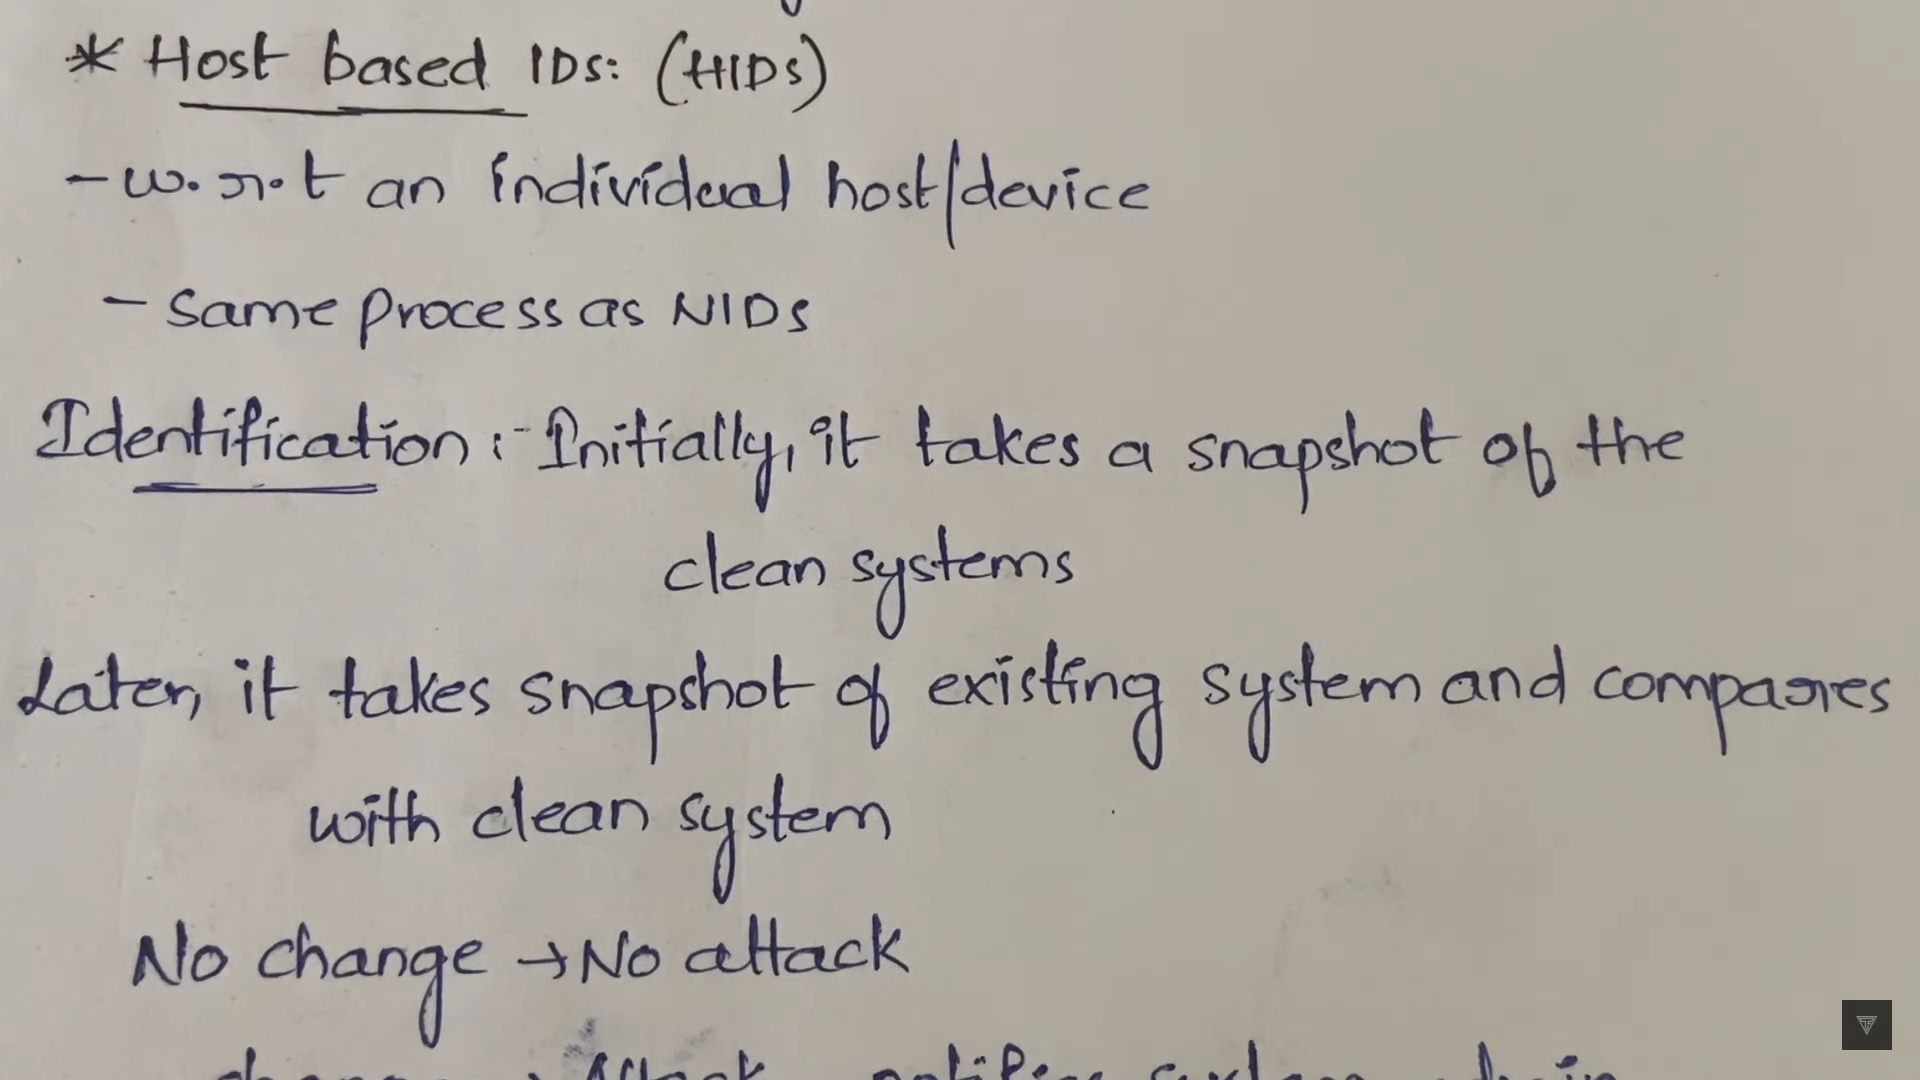 * Host based IDS: (HIDS)
- w.r.t an individual host/device
- Same process as NIDS
Identification :- Initially, it takes a snapshot of the
clean systems
Later, it takes snapshot of existing system and compares
with clean system
No change → No attack